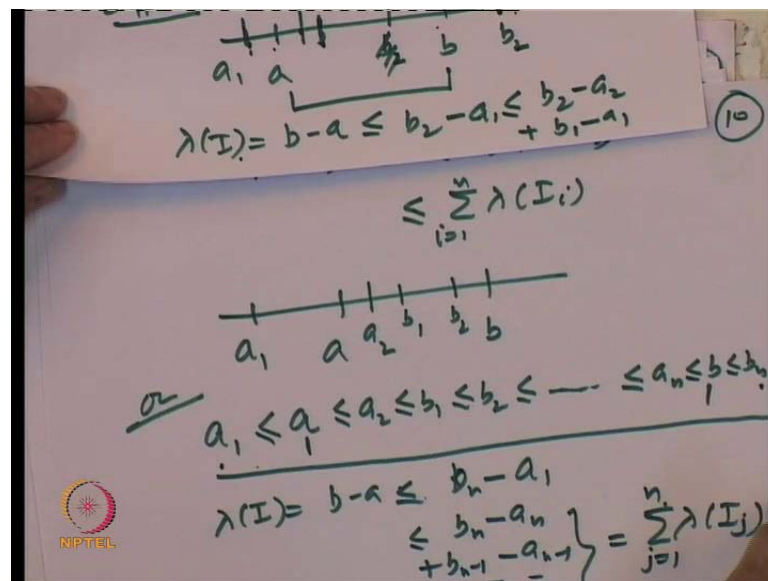 a₁ a b b₂
λ(I) = b - a ≤ b₂ - a₁ ≤ b₂ - a₂
+ b₁ - a₁
10
≤ ∑ⁿᵢ₌₁ λ(Iᵢ)
a₁ a a₂ b₁ b₂ b
or
a₁ ≤ a ≤ a₂ ≤ b₁ ≤ b₂ ≤ — ≤ aₙ ≤ b ≤ bₙ
λ(I) = b - a ≤ bₙ - a₁
≤ bₙ - aₙ
+ bₙ₋₁ - aₙ₋₁ } = ∑ⁿⱼ₌₁ λ(Iⱼ)
NPTEL